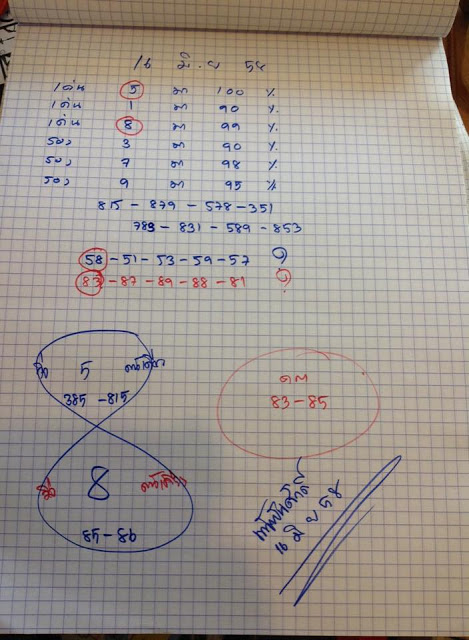 16 มิ.ย 58
เด่น 5 มา 100 %
เด่น 1 มา 90 %
เด่น 8 มา 99 %
รอง 3 มา 90 %
รอง 7 มา 98 %
รอง 9 มา 95 %
815 - 879 - 578 - 351
783 - 831 - 589 - 853
58 - 51 - 53 - 59 - 57
83 - 87 - 89 - 88 - 81
5
385 - 815
83 - 85
8
85 - 86
16 มิ ย 58